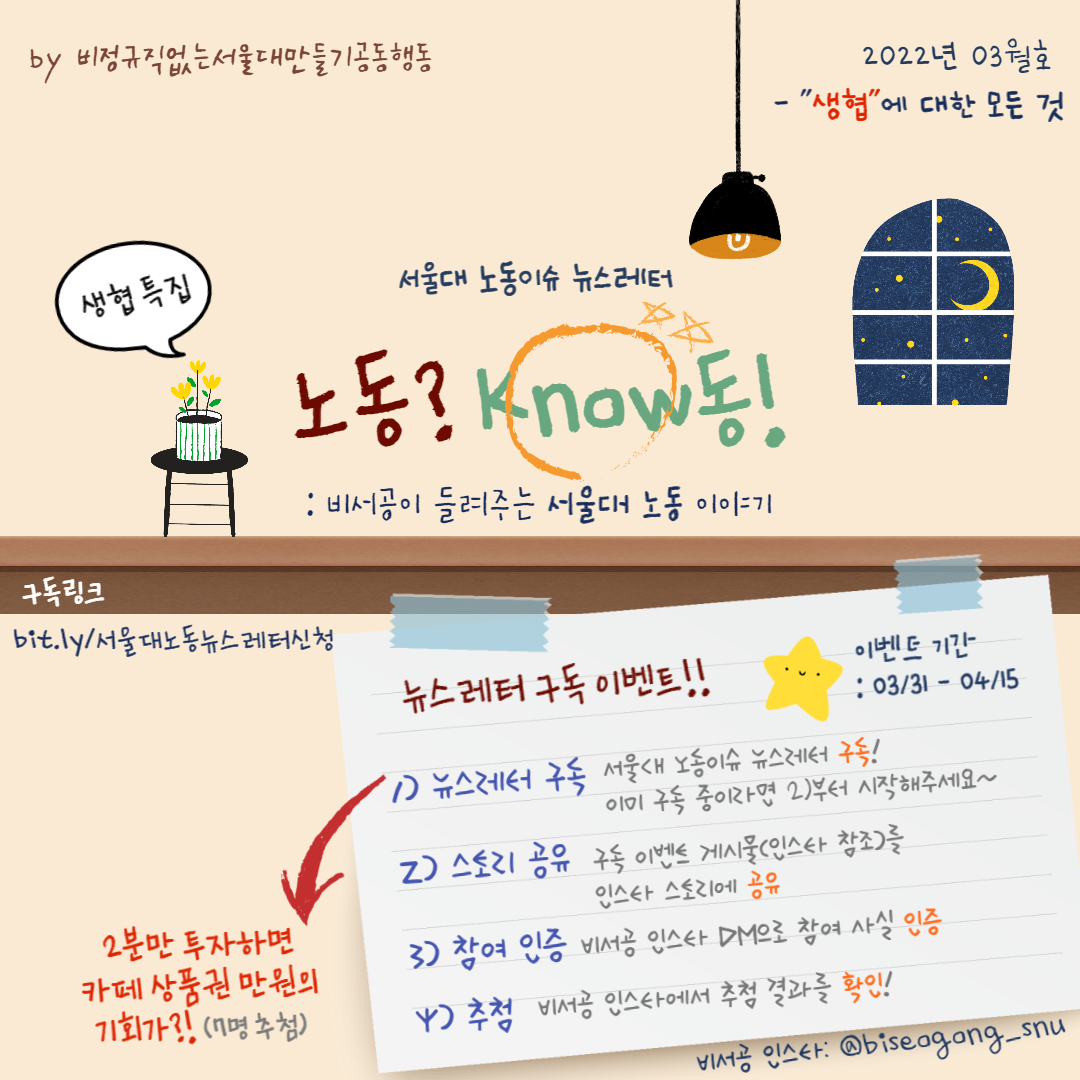 by 비정규직없는서울대만들기공동행동
2022년 03월호
- "생협"에 대한 모든 것
생협 특집
서울대 노동이슈 뉴스레터
노동? Know동!
: 비서공이 들려주는 서울대 노동 이야기
구독링크
bit.ly/서울대노동뉴스레터신청
뉴스레터 구독 이벤트!!
이벤트 기간
: 03/31 - 04/15
1) 뉴스레터 구독 서울대 노동이슈 뉴스레터 구독!
이미 구독 중이라면 2)부터 시작해주세요~
2) 스토리 공유 구독 이벤트 게시물(인스타 참조)를
인스타 스토리에 공유
3) 참여 인증 비서공 인스타 DM으로 참여 사실 인증
4) 추첨 비서공 인스타에서 추첨 결과를 확인!
2분만 투자하면
카페 상품권 만원의
기회가?! (7명 추첨)
비서공 인스타: @biseogong_snu